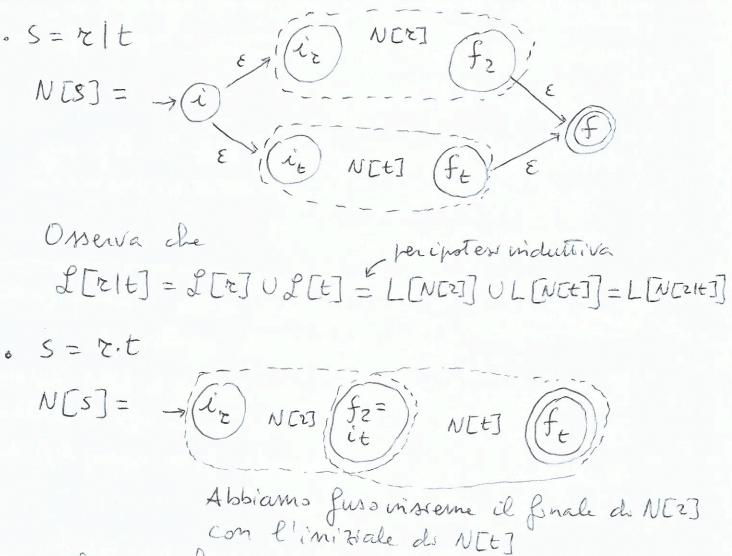 . S = r|t
N[r]
i_r
f_r
ε
ε
N[S] = → i
f
ε
ε
i_t
N[t]
f_t
Osserva che
per ipotesi induttiva
ℒ[r|t] = ℒ[r] ∪ ℒ[t] = L[N[r]] ∪ L[N[t]] = L[N[r|t]]
. S = r·t
N[S] = → i_r N[r] f_r = i_t N[t] f_t
Abbiamo fuso insieme il finale di N[r]
con l'iniziale di N[t]